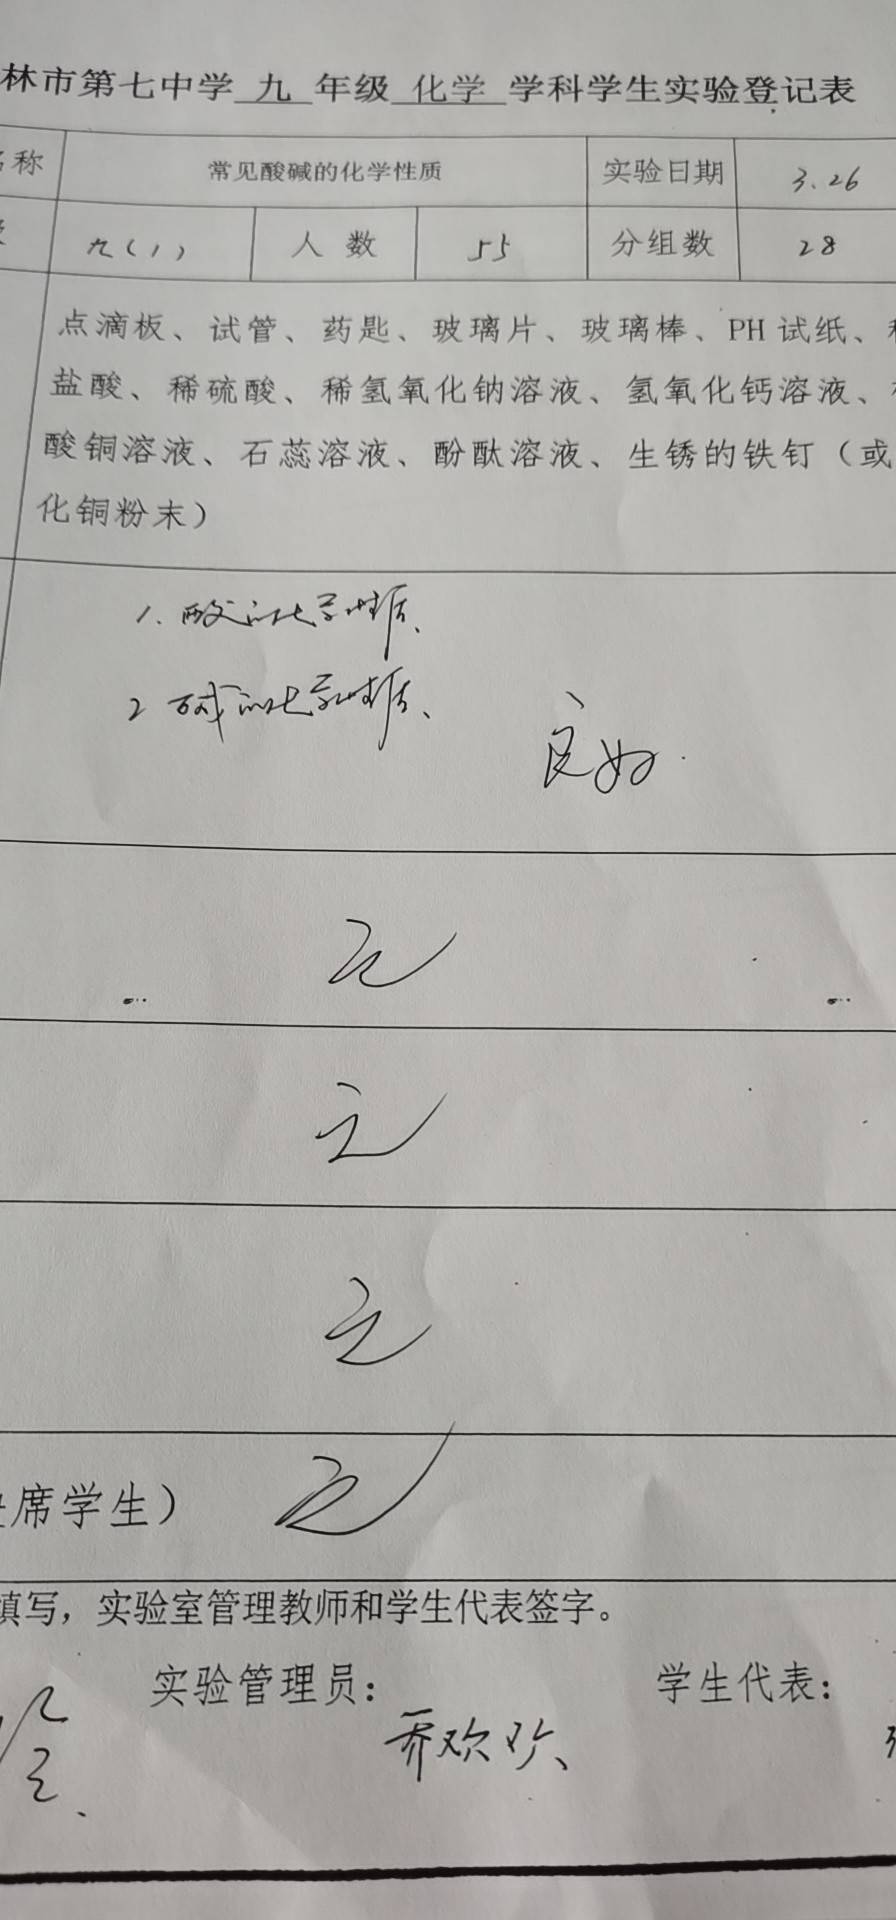 林市第七中学 九 年级 化学 学科学生实验登记表
名称 常见酸碱的化学性质 实验日期 3.26
九(1) 人数 55 分组数 28
点滴板、试管、药匙、玻璃片、玻璃棒、PH 试纸、
盐酸、稀硫酸、稀氢氧化钠溶液、氢氧化钙溶液、
酸铜溶液、石蕊溶液、酚酞溶液、生锈的铁钉（或
化铜粉末）
1. 酸的化学性质、
2 碱的化学性质、
良好.
无
无
无
席学生） 无
填写，实验室管理教师和学生代表签字。
实验管理员： 学生代表：
乔欢欢、